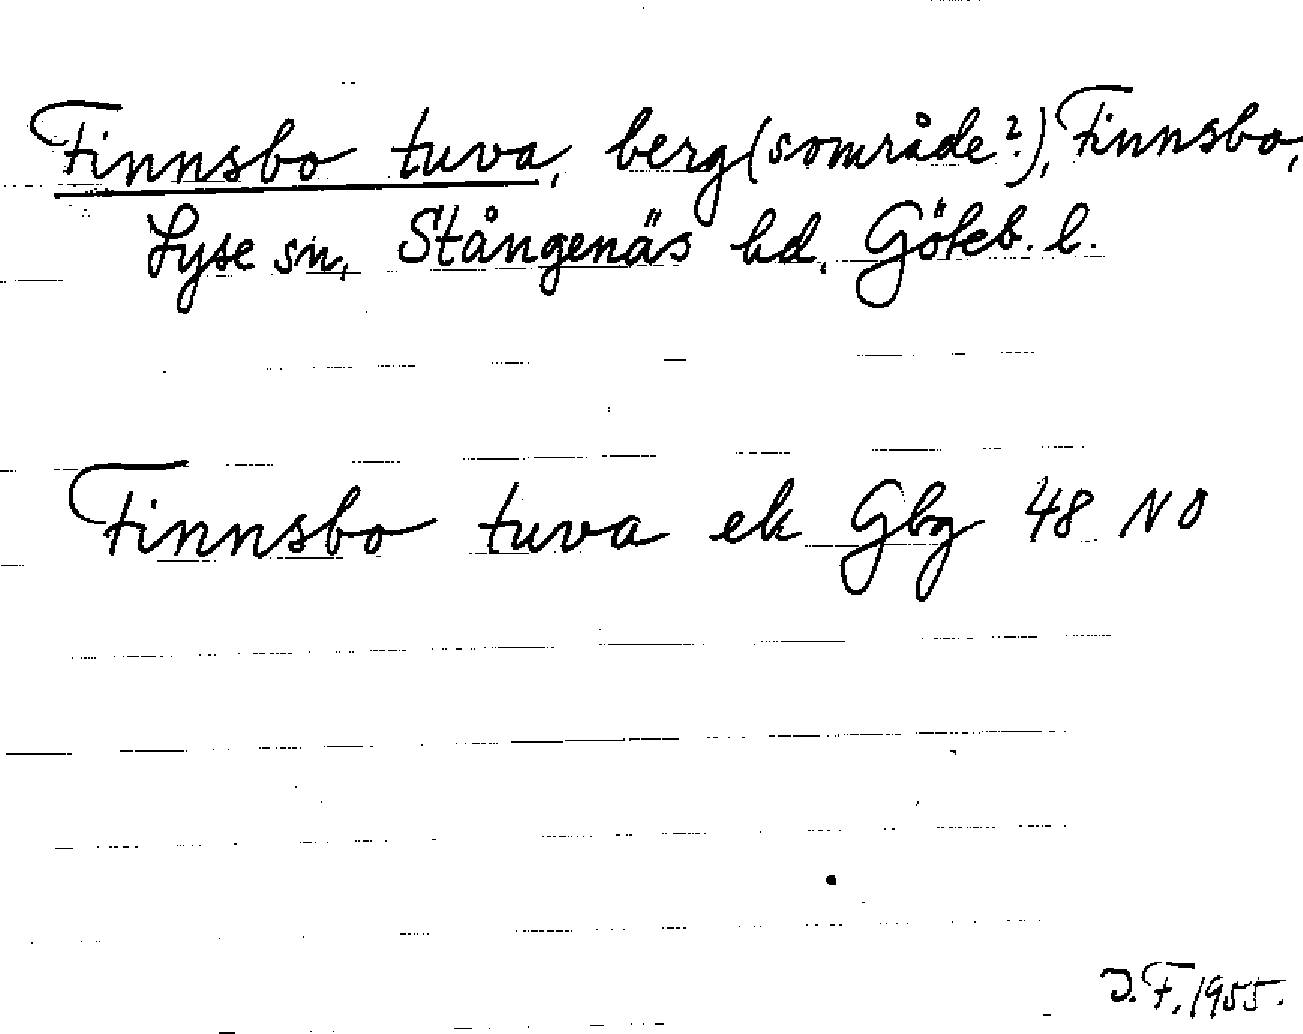 Finnsbo tuva, berg(sområde?), Finnsbo,
Lyse sn, Stångenäs hd. Göteb. l.
Finnsbo tuva ek Gbg 48 NO
J.F. 1955.